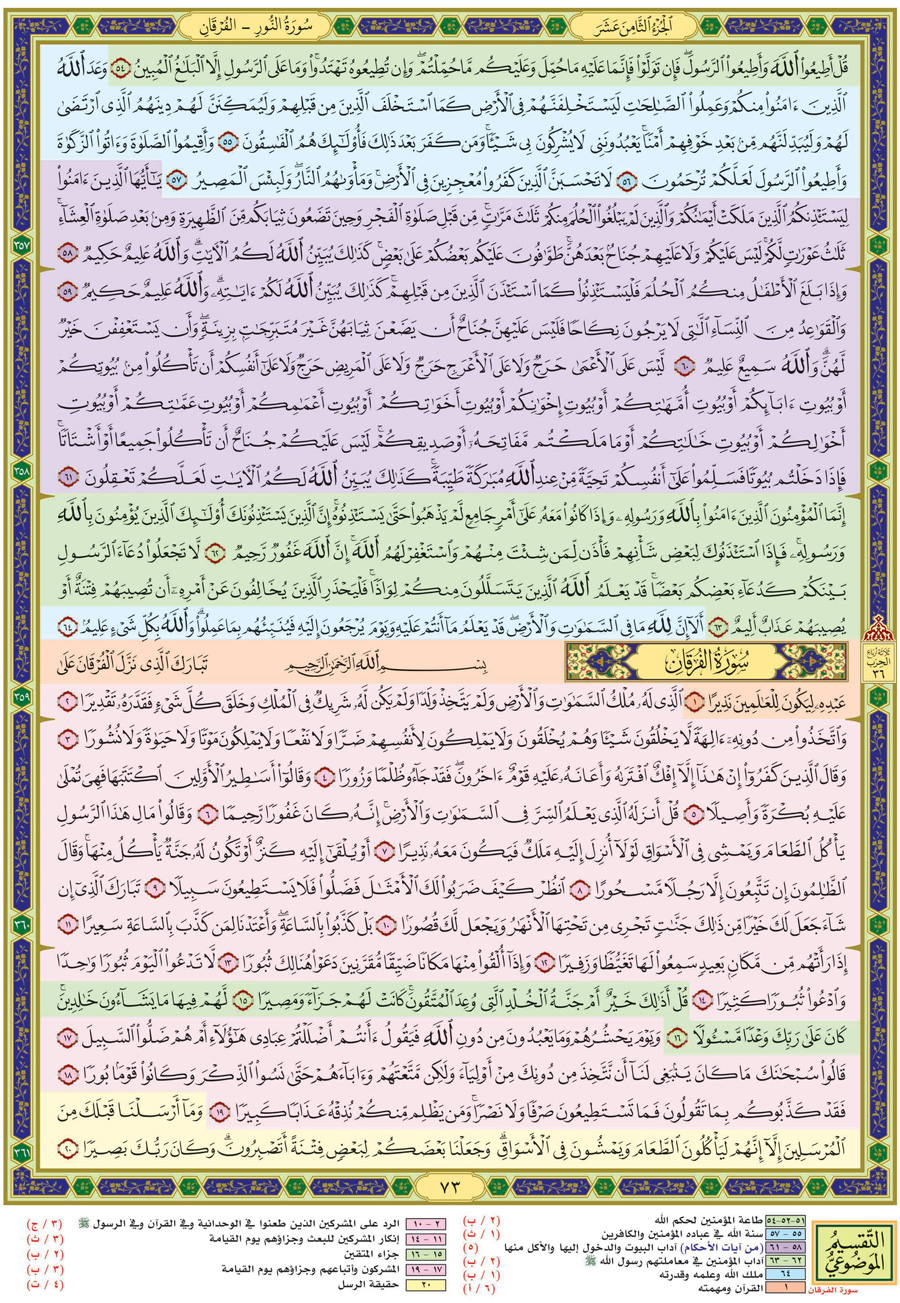 الجُزْءُ الثَّامِنَ عَشَرَ
سُورَةُ النُّورِ - الفُرْقَانِ
قُلْ أَطِيعُوا۟ ٱللَّهَ وَأَطِيعُوا۟ ٱلرَّسُولَ ۖ فَإِن تَوَلَّوْا۟ فَإِنَّمَا عَلَيْهِ مَا حُمِّلَ وَعَلَيْكُم مَّا حُمِّلْتُمْ ۖ وَإِن تُطِيعُوهُ تَهْتَدُوا۟ ۚ وَمَا عَلَى ٱلرَّسُولِ إِلَّا ٱلْبَلَٰغُ ٱلْمُبِينُ ٥٤ وَعَدَ ٱللَّهُ
ٱلَّذِينَ ءَامَنُوا۟ مِنكُمْ وَعَمِلُوا۟ ٱلصَّٰلِحَٰتِ لَيَسْتَخْلِفَنَّهُمْ فِى ٱلْأَرْضِ كَمَا ٱسْتَخْلَفَ ٱلَّذِينَ مِن قَبْلِهِمْ وَلَيُمَكِّنَنَّ لَهُمْ دِينَهُمُ ٱلَّذِى ٱرْتَضَىٰ
لَهُمْ وَلَيُبَدِّلَنَّهُم مِّنۢ بَعْدِ خَوْفِهِمْ أَمْنًا ۚ يَعْبُدُونَنِى لَا يُشْرِكُونَ بِى شَيْـًٔا ۚ وَمَن كَفَرَ بَعْدَ ذَٰلِكَ فَأُو۟لَٰٓئِكَ هُمُ ٱلْفَٰسِقُونَ ٥٥ وَأَقِيمُوا۟ ٱلصَّلَوٰةَ وَءَاتُوا۟ ٱلزَّكَوٰةَ
وَأَطِيعُوا۟ ٱلرَّسُولَ لَعَلَّكُمْ تُرْحَمُونَ ٥٦ لَا تَحْسَبَنَّ ٱلَّذِينَ كَفَرُوا۟ مُعْجِزِينَ فِى ٱلْأَرْضِ ۚ وَمَأْوَىٰهُمُ ٱلنَّارُ ۖ وَلَبِئْسَ ٱلْمَصِيرُ ٥٧ يَٰٓأَيُّهَا ٱلَّذِينَ ءَامَنُوا۟
لِيَسْتَـْٔذِنكُمُ ٱلَّذِينَ مَلَكَتْ أَيْمَٰنُكُمْ وَٱلَّذِينَ لَمْ يَبْلُغُوا۟ ٱلْحُلُمَ مِنكُمْ ثَلَٰثَ مَرَّٰتٍ ۚ مِّن قَبْلِ صَلَوٰةِ ٱلْفَجْرِ وَحِينَ تَضَعُونَ ثِيَابَكُم مِّنَ ٱلظَّهِيرَةِ وَمِنۢ بَعْدِ صَلَوٰةِ ٱلْعِشَآءِ ۚ
ثَلَٰثُ عَوْرَٰتٍ لَّكُمْ ۚ لَيْسَ عَلَيْكُمْ وَلَا عَلَيْهِمْ جُنَاحٌۢ بَعْدَهُنَّ ۚ طَوَّٰفُونَ عَلَيْكُم بَعْضُكُمْ عَلَىٰ بَعْضٍ ۚ كَذَٰلِكَ يُبَيِّنُ ٱللَّهُ لَكُمُ ٱلْءَايَٰتِ ۗ وَٱللَّهُ عَلِيمٌ حَكِيمٌ ٥٨
وَإِذَا بَلَغَ ٱلْأَطْفَٰلُ مِنكُمُ ٱلْحُلُمَ فَلْيَسْتَـْٔذِنُوا۟ كَمَا ٱسْتَـْٔذَنَ ٱلَّذِينَ مِن قَبْلِهِمْ ۚ كَذَٰلِكَ يُبَيِّنُ ٱللَّهُ لَكُمْ ءَايَٰتِهِۦ ۗ وَٱللَّهُ عَلِيمٌ حَكِيمٌ ٥٩
وَٱلْقَوَٰعِدُ مِنَ ٱلنِّسَآءِ ٱلَّٰتِى لَا يَرْجُونَ نِكَاحًا فَلَيْسَ عَلَيْهِنَّ جُنَاحٌ أَن يَضَعْنَ ثِيَابَهُنَّ غَيْرَ مُتَبَرِّجَٰتٍۭ بِزِينَةٍ ۖ وَأَن يَسْتَعْفِفْنَ خَيْرٌ
لَّهُنَّ ۗ وَٱللَّهُ سَمِيعٌ عَلِيمٌ ٦٠ لَّيْسَ عَلَى ٱلْأَعْمَىٰ حَرَجٌ وَلَا عَلَى ٱلْأَعْرَجِ حَرَجٌ وَلَا عَلَى ٱلْمَرِيضِ حَرَجٌ وَلَا عَلَىٰٓ أَنفُسِكُمْ أَن تَأْكُلُوا۟ مِنۢ بُيُوتِكُمْ
أَوْ بُيُوتِ ءَابَآئِكُمْ أَوْ بُيُوتِ أُمَّهَٰتِكُمْ أَوْ بُيُوتِ إِخْوَٰنِكُمْ أَوْ بُيُوتِ أَخَوَٰتِكُمْ أَوْ بُيُوتِ أَعْمَٰمِكُمْ أَوْ بُيُوتِ عَمَّٰتِكُمْ أَوْ بُيُوتِ
أَخْوَٰلِكُمْ أَوْ بُيُوتِ خَٰلَٰتِكُمْ أَوْ مَا مَلَكْتُم مَّفَاتِحَهُۥٓ أَوْ صَدِيقِكُمْ ۚ لَيْسَ عَلَيْكُمْ جُنَاحٌ أَن تَأْكُلُوا۟ جَمِيعًا أَوْ أَشْتَاتًا ۚ
فَإِذَا دَخَلْتُم بُيُوتًا فَسَلِّمُوا۟ عَلَىٰٓ أَنفُسِكُمْ تَحِيَّةً مِّنْ عِندِ ٱللَّهِ مُبَٰرَكَةً طَيِّبَةً ۚ كَذَٰلِكَ يُبَيِّنُ ٱللَّهُ لَكُمُ ٱلْءَايَٰتِ لَعَلَّكُمْ تَعْقِلُونَ ٦١
إِنَّمَا ٱلْمُؤْمِنُونَ ٱلَّذِينَ ءَامَنُوا۟ بِٱللَّهِ وَرَسُولِهِۦ وَإِذَا كَانُوا۟ مَعَهُۥ عَلَىٰٓ أَمْرٍ جَامِعٍ لَّمْ يَذْهَبُوا۟ حَتَّىٰ يَسْتَـْٔذِنُوهُ ۚ إِنَّ ٱلَّذِينَ يَسْتَـْٔذِنُونَكَ أُو۟لَٰٓئِكَ ٱلَّذِينَ يُؤْمِنُونَ بِٱللَّهِ
وَرَسُولِهِۦ ۚ فَإِذَا ٱسْتَـْٔذَنُوكَ لِبَعْضِ شَأْنِهِمْ فَأْذَن لِّمَن شِئْتَ مِنْهُمْ وَٱسْتَغْفِرْ لَهُمُ ٱللَّهَ ۚ إِنَّ ٱللَّهَ غَفُورٌ رَّحِيمٌ ٦٢ لَّا تَجْعَلُوا۟ دُعَآءَ ٱلرَّسُولِ
بَيْنَكُمْ كَدُعَآءِ بَعْضِكُم بَعْضًا ۚ قَدْ يَعْلَمُ ٱللَّهُ ٱلَّذِينَ يَتَسَلَّلُونَ مِنكُمْ لِوَاذًا ۚ فَلْيَحْذَرِ ٱلَّذِينَ يُخَالِفُونَ عَنْ أَمْرِهِۦٓ أَن تُصِيبَهُمْ فِتْنَةٌ أَوْ
يُصِيبَهُمْ عَذَابٌ أَلِيمٌ ٦٣ أَلَآ إِنَّ لِلَّهِ مَا فِى ٱلسَّمَٰوَٰتِ وَٱلْأَرْضِ ۖ قَدْ يَعْلَمُ مَآ أَنتُمْ عَلَيْهِ وَيَوْمَ يُرْجَعُونَ إِلَيْهِ فَيُنَبِّئُهُم بِمَا عَمِلُوا۟ ۗ وَٱللَّهُ بِكُلِّ شَىْءٍ عَلِيمٌۢ ٦٤
سُورَةُ الفُرْقَانِ
بِسْمِ ٱللَّهِ ٱلرَّحْمَٰنِ ٱلرَّحِيمِ تَبَارَكَ ٱلَّذِى نَزَّلَ ٱلْفُرْقَانَ عَلَىٰ
عَبْدِهِۦ لِيَكُونَ لِلْعَٰلَمِينَ نَذِيرًا ١ ٱلَّذِى لَهُۥ مُلْكُ ٱلسَّمَٰوَٰتِ وَٱلْأَرْضِ وَلَمْ يَتَّخِذْ وَلَدًا وَلَمْ يَكُن لَّهُۥ شَرِيكٌ فِى ٱلْمُلْكِ وَخَلَقَ كُلَّ شَىْءٍ فَقَدَّرَهُۥ تَقْدِيرًا ٢
وَٱتَّخَذُوا۟ مِن دُونِهِۦٓ ءَالِهَةً لَّا يَخْلُقُونَ شَيْـًٔا وَهُمْ يُخْلَقُونَ وَلَا يَمْلِكُونَ لِأَنفُسِهِمْ ضَرًّا وَلَا نَفْعًا وَلَا يَمْلِكُونَ مَوْتًا وَلَا حَيَوٰةً وَلَا نُشُورًا ٣
وَقَالَ ٱلَّذِينَ كَفَرُوٓا۟ إِنْ هَٰذَآ إِلَّآ إِفْكٌ ٱفْتَرَىٰهُ وَأَعَانَهُۥ عَلَيْهِ قَوْمٌ ءَاخَرُونَ ۖ فَقَدْ جَآءُو ظُلْمًا وَزُورًا ٤ وَقَالُوٓا۟ أَسَٰطِيرُ ٱلْأَوَّلِينَ ٱكْتَتَبَهَا فَهِىَ تُمْلَىٰ
عَلَيْهِ بُكْرَةً وَأَصِيلًا ٥ قُلْ أَنزَلَهُ ٱلَّذِى يَعْلَمُ ٱلسِّرَّ فِى ٱلسَّمَٰوَٰتِ وَٱلْأَرْضِ ۚ إِنَّهُۥ كَانَ غَفُورًا رَّحِيمًا ٦ وَقَالُوا۟ مَالِ هَٰذَا ٱلرَّسُولِ
يَأْكُلُ ٱلطَّعَامَ وَيَمْشِى فِى ٱلْأَسْوَاقِ ۙ لَوْلَآ أُنزِلَ إِلَيْهِ مَلَكٌ فَيَكُونَ مَعَهُۥ نَذِيرًا ٧ أَوْ يُلْقَىٰٓ إِلَيْهِ كَنزٌ أَوْ تَكُونُ لَهُۥ جَنَّةٌ يَأْكُلُ مِنْهَا ۚ وَقَالَ
ٱلظَّٰلِمُونَ إِن تَتَّبِعُونَ إِلَّا رَجُلًا مَّسْحُورًا ٨ ٱنظُرْ كَيْفَ ضَرَبُوا۟ لَكَ ٱلْأَمْثَٰلَ فَضَلُّوا۟ فَلَا يَسْتَطِيعُونَ سَبِيلًا ٩ تَبَارَكَ ٱلَّذِىٓ إِن
شَآءَ جَعَلَ لَكَ خَيْرًا مِّن ذَٰلِكَ جَنَّٰتٍ تَجْرِى مِن تَحْتِهَا ٱلْأَنْهَٰرُ وَيَجْعَل لَّكَ قُصُورًۢا ١٠ بَلْ كَذَّبُوا۟ بِٱلسَّاعَةِ ۖ وَأَعْتَدْنَا لِمَن كَذَّبَ بِٱلسَّاعَةِ سَعِيرًا ١١
إِذَا رَأَتْهُم مِّن مَّكَانٍۭ بَعِيدٍ سَمِعُوا۟ لَهَا تَغَيُّظًا وَزَفِيرًا ١٢ وَإِذَآ أُلْقُوا۟ مِنْهَا مَكَانًا ضَيِّقًا مُّقَرَّنِينَ دَعَوْا۟ هُنَالِكَ ثُبُورًا ١٣ لَّا تَدْعُوا۟ ٱلْيَوْمَ ثُبُورًا وَٰحِدًا
وَٱدْعُوا۟ ثُبُورًا كَثِيرًا ١٤ قُلْ أَذَٰلِكَ خَيْرٌ أَمْ جَنَّةُ ٱلْخُلْدِ ٱلَّتِى وُعِدَ ٱلْمُتَّقُونَ ۚ كَانَتْ لَهُمْ جَزَآءً وَمَصِيرًا ١٥ لَّهُمْ فِيهَا مَا يَشَآءُونَ خَٰلِدِينَ ۚ
كَانَ عَلَىٰ رَبِّكَ وَعْدًا مَّسْـُٔولًا ١٦ وَيَوْمَ يَحْشُرُهُمْ وَمَا يَعْبُدُونَ مِن دُونِ ٱللَّهِ فَيَقُولُ ءَأَنتُمْ أَضْلَلْتُمْ عِبَادِى هَٰٓؤُلَآءِ أَمْ هُمْ ضَلُّوا۟ ٱلسَّبِيلَ ١٧
قَالُوا۟ سُبْحَٰنَكَ مَا كَانَ يَنۢبَغِى لَنَآ أَن نَّتَّخِذَ مِن دُونِكَ مِنْ أَوْلِيَآءَ وَلَٰكِن مَّتَّعْتَهُمْ وَءَابَآءَهُمْ حَتَّىٰ نَسُوا۟ ٱلذِّكْرَ وَكَانُوا۟ قَوْمًۢا بُورًا ١٨
فَقَدْ كَذَّبُوكُم بِمَا تَقُولُونَ فَمَا تَسْتَطِيعُونَ صَرْفًا وَلَا نَصْرًا ۚ وَمَن يَظْلِم مِّنكُمْ نُذِقْهُ عَذَابًا كَبِيرًا ١٩ وَمَآ أَرْسَلْنَا قَبْلَكَ مِنَ
ٱلْمُرْسَلِينَ إِلَّآ إِنَّهُمْ لَيَأْكُلُونَ ٱلطَّعَامَ وَيَمْشُونَ فِى ٱلْأَسْوَاقِ ۗ وَجَعَلْنَا بَعْضَكُمْ لِبَعْضٍ فِتْنَةً أَتَصْبِرُونَ ۗ وَكَانَ رَبُّكَ بَصِيرًا ٢٠
٣٥٧
٣٥٨
ثلاثة أرباع
الحزب
٣٦
٣٥٩
٣٦٠
٣٦١
٧٣
التَّقسِيمُ
المَوْضُوعِيُّ
٥١-٥٢-٥٤ طاعة المؤمنين لحكم الله (٢ / ب)
٥٥ - ٥٧ سنة الله في عباده المؤمنين والكافرين (١ / ث)
٥٨ - ٦١ (من آيات الأحكام) آداب البيوت والدخول إليها والأكل منها (٥)
٦٢ - ٦٣ آداب المؤمنين في معاملتهم رسول الله ﷺ (٢ / ب)
٦٤ ملك الله وعلمه وقدرته (١ / ب)
سورة الفرقان ١ القرآن ومهمته (٦ / أ)
٢ - ١٠ الرد على المشركين الذين طعنوا في الوحدانية وفي القرآن وفي الرسول ﷺ (٣ / ج)
١١ - ١٤ إنكار المشركين للبعث وجزاؤهم يوم القيامة (٣ / ث)
١٥ - ١٦ جزاء المتقين (٢ / ب)
١٧ - ١٩ المشركون وأتباعهم وجزاؤهم يوم القيامة (٣ / ب)
٢٠ حقيقة الرسل (٤ / ت)